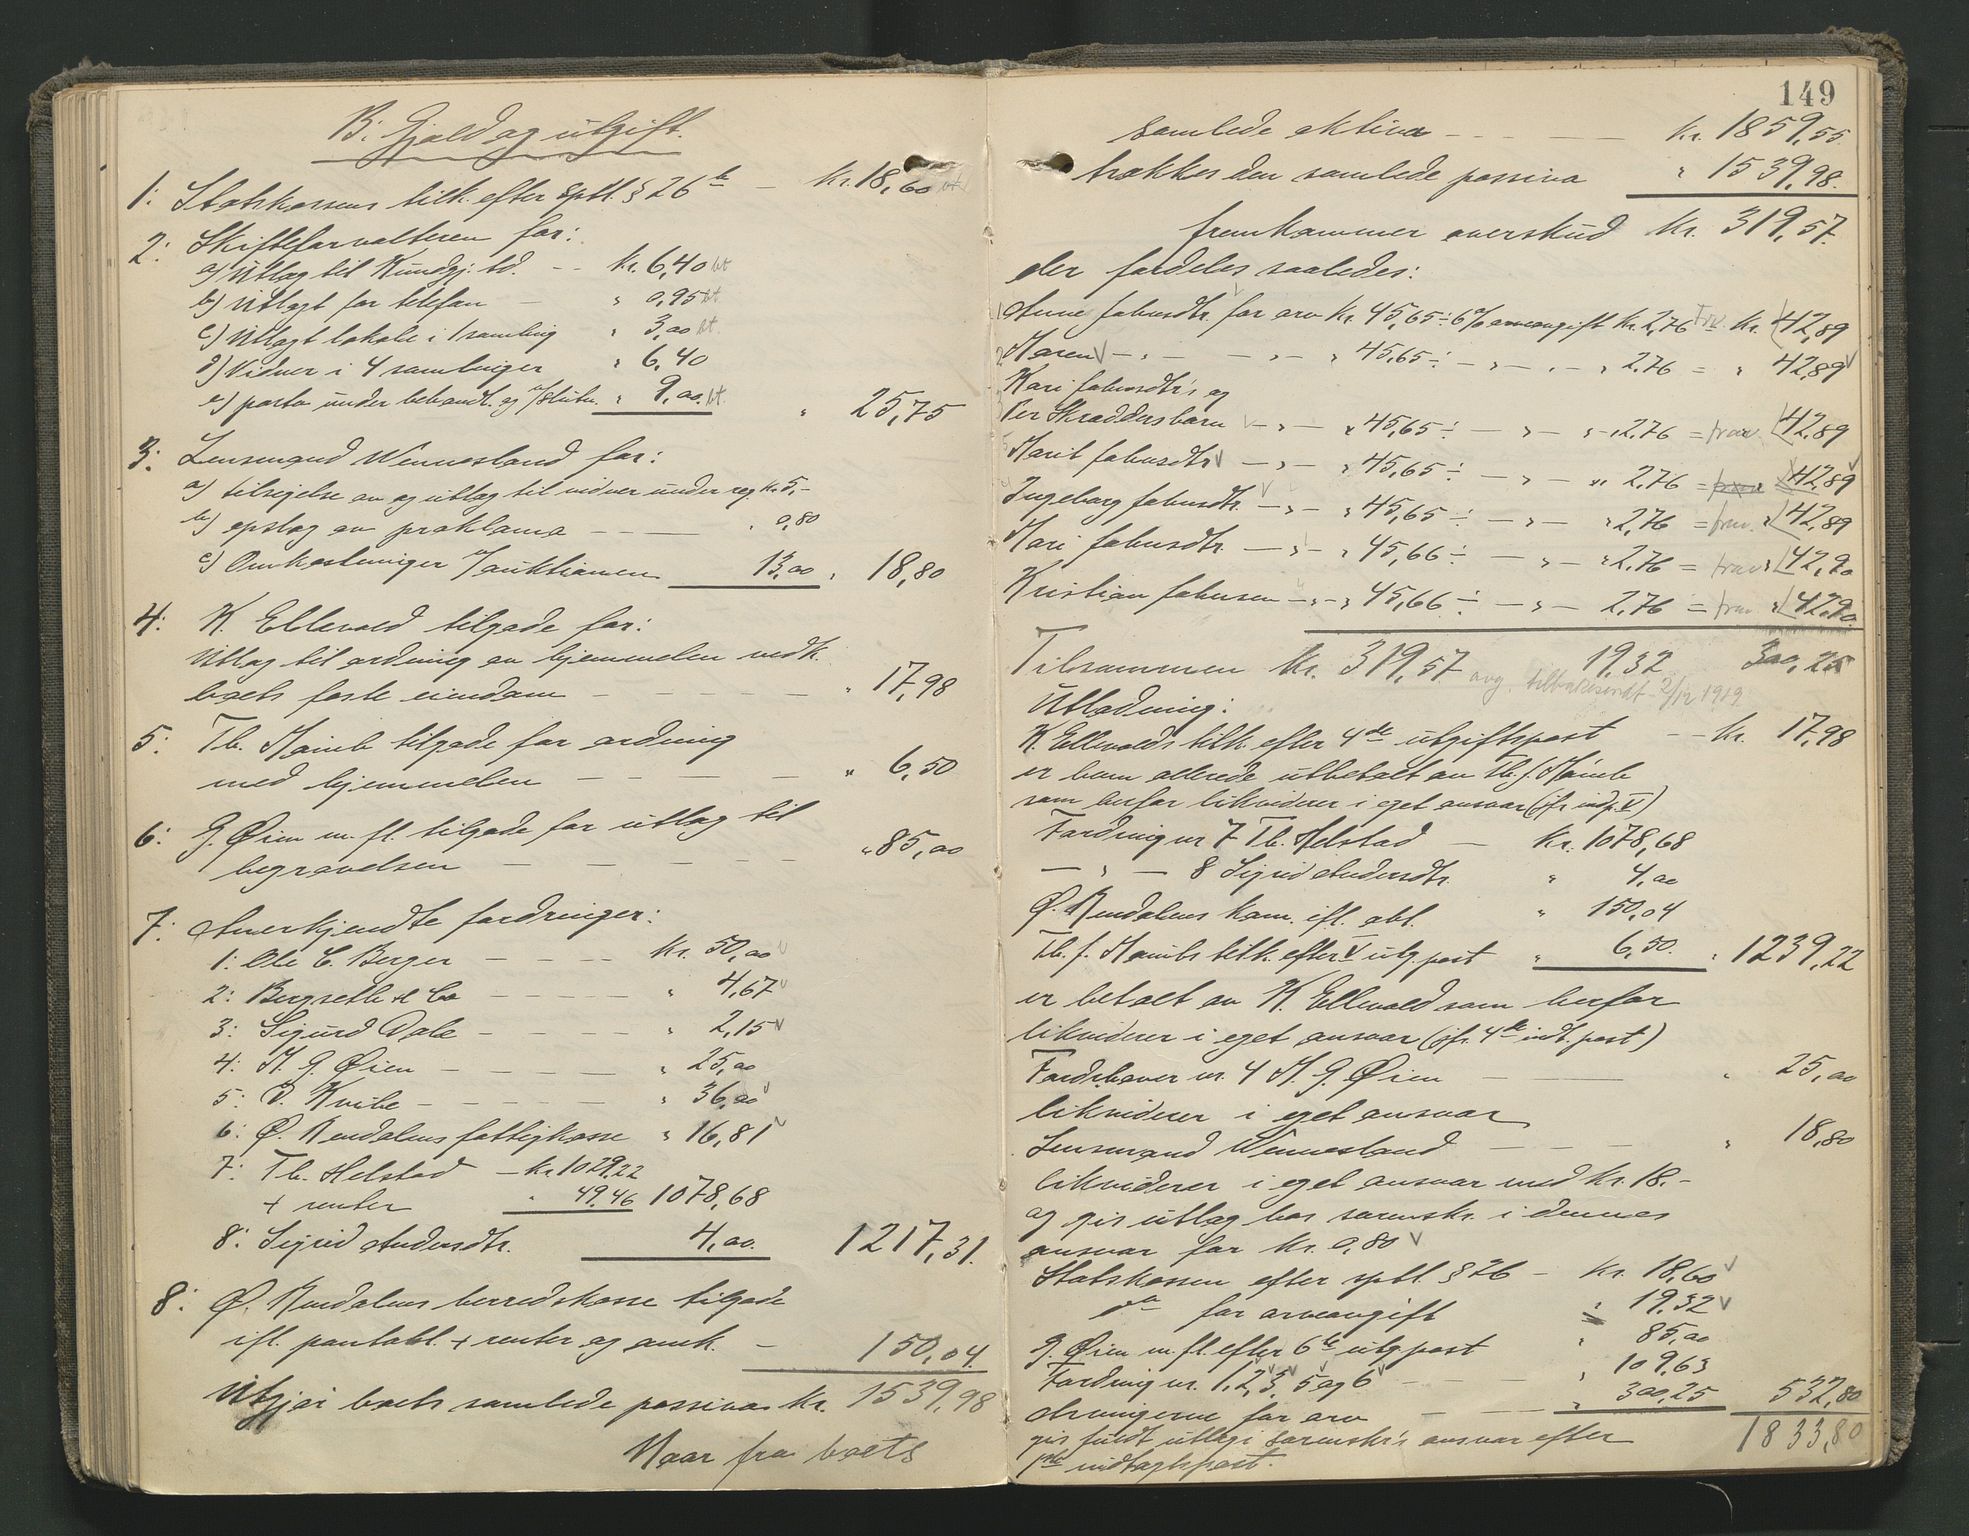 B: Gjæld og utgift.
1: Statskassens tilk. efter sptl. § 26 b — kr. 18,60 bt
2: Skifteforvalteren for:
a) Utlæg til Kundgj. td. - - kr. 6,40 bt
b) Utlagt for telefon — " 0,95 bt.
c) Utlagt lokale i 1 samling " 3,00 bt.
d) Vidner i 4 samlinger " 6,40
e) porto under behandl. og v/slutn. " 9,00 bt. " 25,75
3: Lensmand Wennesland for:
a) tilsigelse av og utlæg til vidner under reg. kr. 5,-
b) opslag av proklama — — — " 0,80
c) Omkostninger v/auktionen 13,00 " 18,80
4: K. Ellevold tilgode for:
Utlæg til ordning av hjemmelen vedk.
boets faste eiendom — — — " 17,98
5: Th. Haineb tilgode for ordning
med hjemmelen — — — — " 6,50
6: G. Øien m. fl. tilgode for utlæg til
begravelsen — — — — " 85,00
7: Anerkjendte fordringer:
1: Ole C. Berger — — — — kr. 50,00
2: Bergseth & Co — — — — " 4,67
3: Sigurd Dale — — — — " 2,15
4: H. G. Øien — — — — " 25,00
5: O. Kvibe — — — — " 36,00
6: Ø. Rendalens fattigkasse " 16,81
7: Th. Helstad — kr. 1029,22
+ renter " 49,46 1078,68
8: Sigrid Andersdtr. 4,00. 1217,31.
8: Ø. Rendalens herredskasse tilgode
ifl. pantobl. + renter og omk. — 150,04
Utgjør boets samlede passiva kr. 1539,98
Naar fra boets
149
samlede aktiva — — — kr. 1859,55
trækkes den samlede passiva " 1539,98.
fremkommer overskud kr. 319,57.
der fordeles saaledes:
Anne Johnsdtr. for arv kr. 45,65 ÷ 6 % arveavgift kr. 2,76 kr. 42,89
Maren — " — — " — " 45,65 ÷ — " — " — " 2,76 = " 42,89
Kari Johnsdtr's og
Per Skræddersbarn — " — " 45,65 ÷ — " — " — 2,76 = frav. 42,89
Marit Johnsdtr — " — " 45,65 ÷ — " — " 2,76 = 42,89
Ingeborg Johnsdtr. — " — " 45,65 ÷ — " — " 2,76 = frav. " 42,89
Mari Johnsdtr. — " — " 45,66 ÷ — " — " 2,76 = frav. " 42,90
Kristian Johnsen — " — " 45,66 ÷ — " — 2,76 = frav " 42,90.
Tilsammen kr. 319,57 19,32 300,25
avg. tilbakesendt 2/12 1919
Utlodning:
K. Ellevolds tilk. efter 4de utgiftspost - - kr. 17,98
er ham allerede utbetalt av Th. J. Haineb
som herfor likviderer i eget ansvar (jfr. indp. V)
Fordring nr 7 Th. Helstad — kr. 1078,68
— " — 8 Sigrid Andersdtr. " 4,00
Ø. Rendalens kom. ifl. obl. " 150,04
Th. J. Hainebs tilk. efter V utg. post " 6,50. " 1239,22
er betalt av K. Ellevold som herfor
likviderer i eget ansvar (jfr. 4de indt. post)
Fordr.haver nr. 4 H. G. Øien — — " 25,00
likviderer i eget ansvar
Lensmand Wennesland — — — " 18,80
likviderer i eget ansvar med kr. 18.-
og gis utlæg hos sorenskr. i dennes
ansvar for kr. 0,80
Statskassen efter sptl. § 26 — kr. 18,60
do for arveavgift " 19,32
G. Øien m. fl. efter 6te utg. post " 85,00
Fordring nr. 1, 2, 3, 5 og 6 — — — " 109,63
Arvingerne for arv — — " 300,25 532,80
gis fuldt utlæg i sorenskr's ansvar efter 1833,80
1ste indtægtspost.